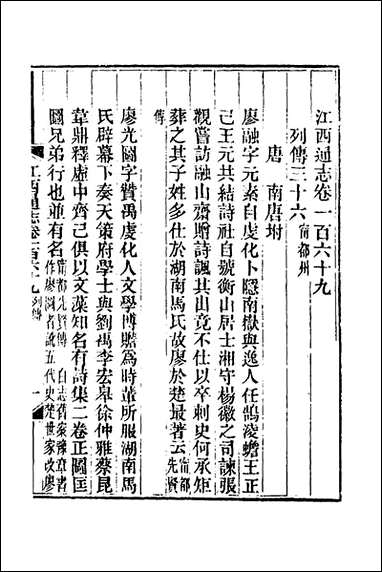 江西通志卷一百六十九
列傳三十六 甯都州
唐 南唐坿
廖融字元素自虔化卜隱南嶽與逸人任鵠凌蟾王正
己王元共結詩社自號衡山居士湘守楊徽之司諫張
觀嘗訪融山齋贈詩諷其出竟不仕以卒刺史何承矩
葬之其子姓多仕於湖南馬氏故廖於楚最著云 甯都先賢
傳
廖光圖字贊禹虔化人文學博贍為時輩所服湖南馬
氏辟幕下奏天策府學士與劉禹李宏皋徐仲雅蔡昆
韋鼎釋虛中齊己俱以文藻知名有詩集二卷正圖匡
圖兄弟行也並有名 甯都先賢傳 白志舊豫章書
作廖圖者說五代史楚世家改廖
江西通志卷一百六十九 列傳 一